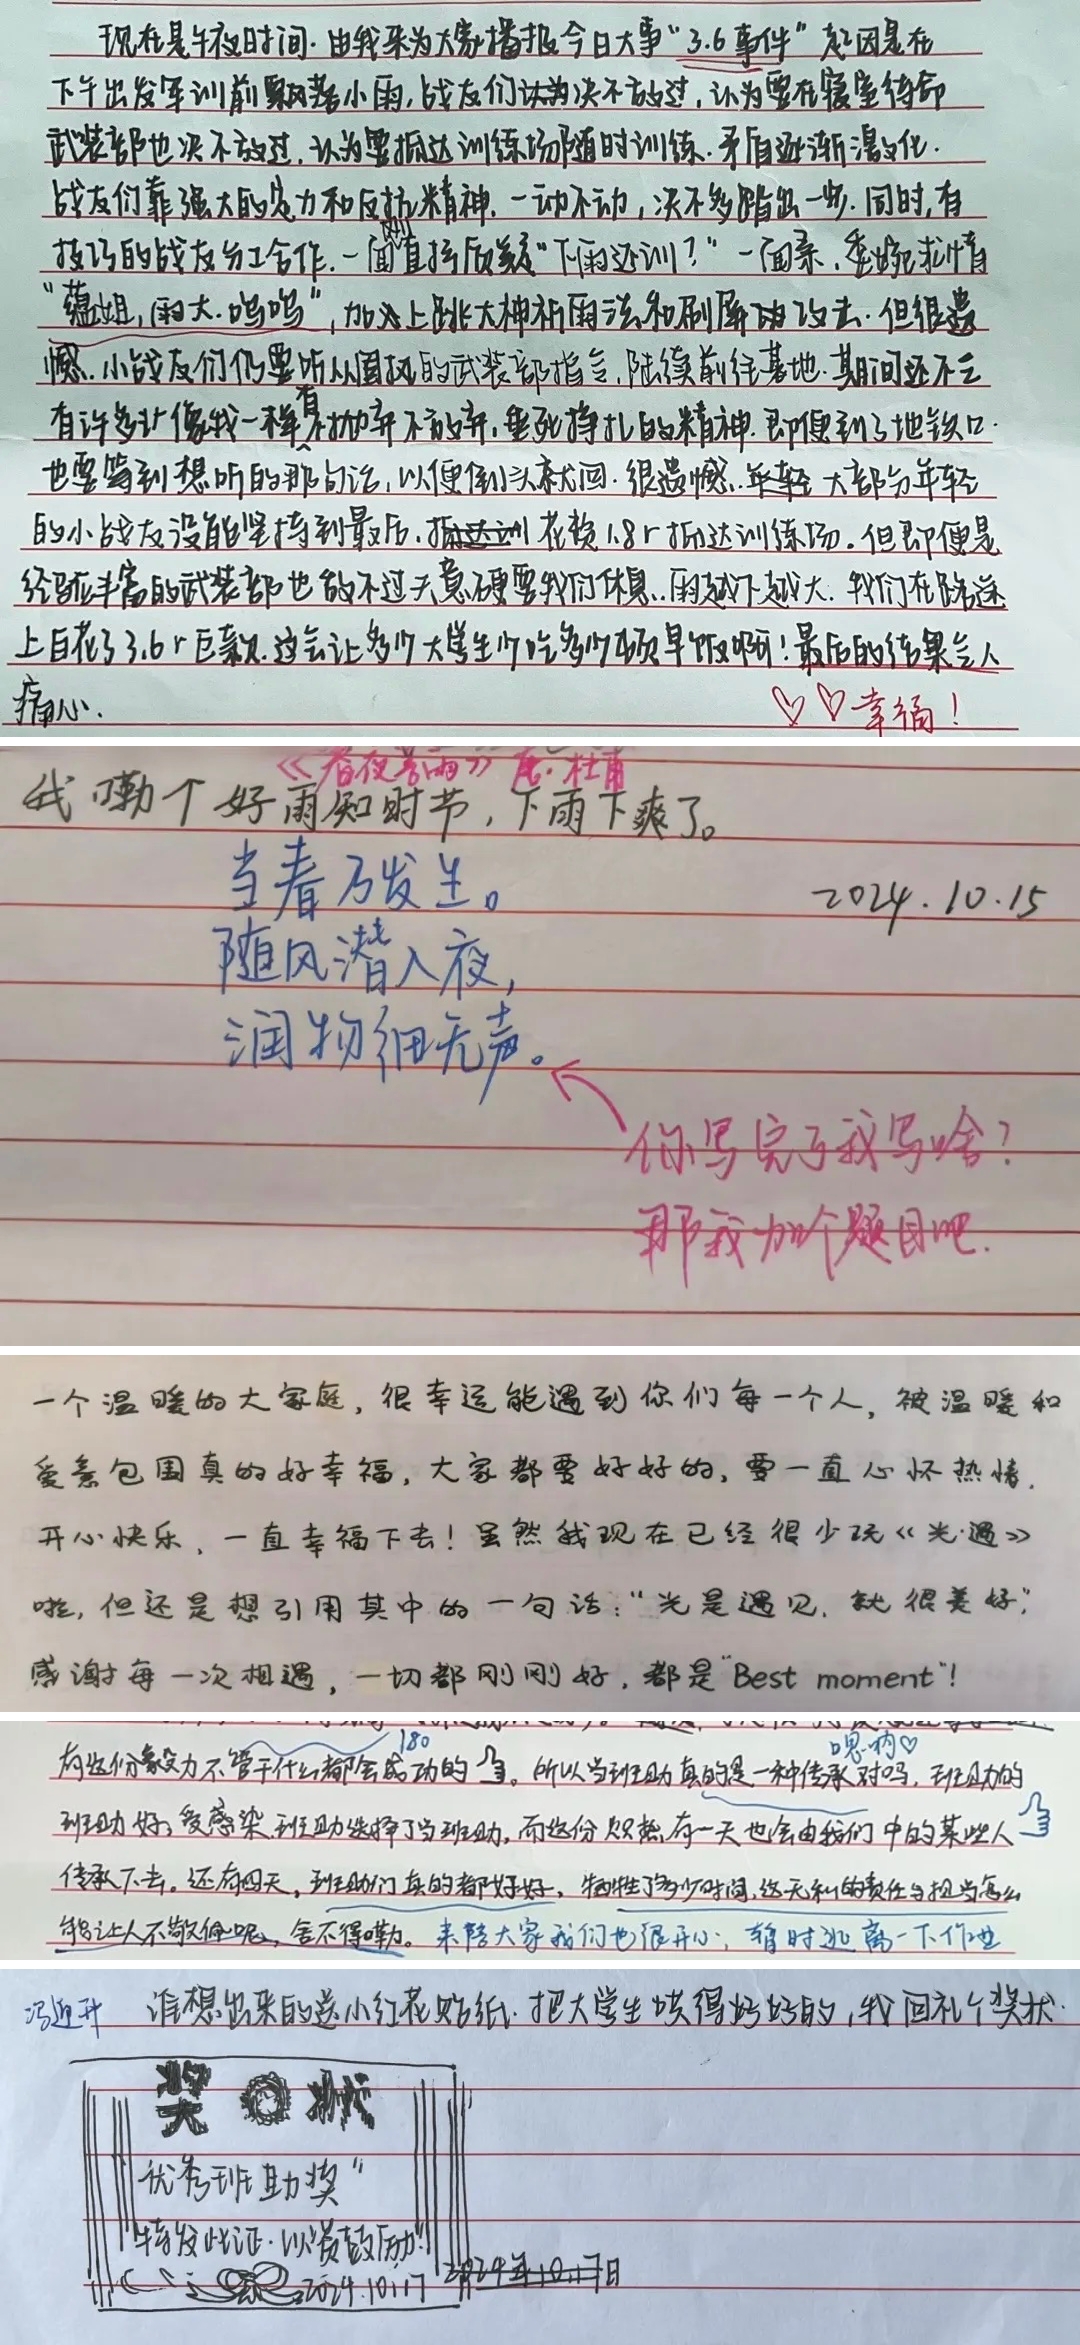 现在是午夜时间.由我来为大家播报今日大事"3.6事件"起因是在
下午出发军训前飘着小雨,战友们决不放过,认为要在寝室待命
武装部也决不放过,认为要抵达训练场随时训练.矛盾逐渐激化.
战友们靠强大的定力和反抗精神.一动不动,决不多踏出一步.同时,有
技巧的战友分工合作.一面直接质疑"下雨还训?"一面亲,委婉求情
"蕴姐,雨大.呜呜",加以上跳大神祈雨法和刷屏功攻击.但很遗
憾.小战友们仍要听从固执的武装部指令,陆续前往基地.期间还不乏
有许多像我一样有不抛弃不放弃,垂死挣扎的精神.即便到了地铁口.
也要等到想听的那句话,以便倒头就回.很遗憾..大部分年轻
的小战友没能坚持到最后.花费1.8r抵达训练场。但即便是
经验丰富的武装部也敌不过天意硬要我们休息..雨越下越大.我们在路途
上白花了3.6r巨款.这会让多少大学生少吃多少顿早饭啊!最后的结果令人
痛心.
♡♡幸福!
《春夜喜雨》唐·杜甫
我嘞个好雨知时节,下雨下爽了。
当春乃发生。
2024.10.15
随风潜入夜,
润物细无声。
你写完了我写啥?
那我加个题目吧.
一个温暖的大家庭,很幸运能遇到你们每一个人,被温暖和
爱意包围真的好幸福,大家都要好好的,要一直心怀热情,
开心快乐,一直幸福下去!虽然我现在已经很少玩《光·遇》
啦,但还是想引用其中的一句话:"光是遇见,就很美好",
感谢每一次相遇,一切都刚刚好,都是"Best moment"!
180
嗯呐♡
有这份毅力不管干什么都会成功的。所以当班助真的是一种传承对吗,班助的
班助好,受感染班助选择了当班助,而这份炽热有一天也会由我们中的某些人
传承下去。还有四天,班助们真的都好好,牺牲了多少时间,这无私的责任与担当怎么
能让人不敬佩呢,舍不得嘞。来陪大家我们也很开心,暂时逃离一下作业
冯迎升 谁想出来的送小红花贴纸.把大学生哄得好好的,我回礼个奖状.
奖 状
优秀班助奖"
特发此证.以资鼓励"!
2024.10.17
2024年10.17日